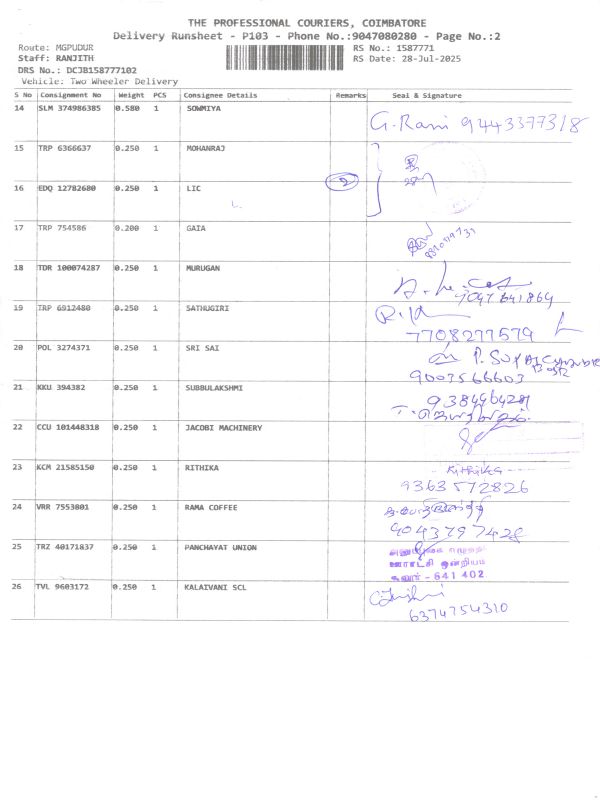 THE PROFESSIONAL COURIERS, COIMBATORE
Delivery Runsheet - P103 - Phone No.:9047080280 - Page No.:2
Route: MGPUDUR
RS No.: 1587771
Staff: RANJITH
RS Date: 28-Jul-2025
DRS No.: DCJB158777102
Vehicle: Two Wheeler Delivery
S No Consignment No Weight PCS Consignee Details Remarks Seal & Signature
14 SLM 374986385 0.580 1 SOWMIYA
G. Rani 9443377318
15 TRP 6366637 0.250 1 MOHANRAJ
16 EDQ 12782680 0.250 1 LIC 2
17 TRP 754586 0.200 1 GAIA
18 TDR 100074287 0.250 1 MURUGAN
19 TRP 6912480 0.250 1 SATHUGIRI
7708277579
20 POL 3274371 0.250 1 SRI SAI
9003566603
21 KKU 394382 0.250 1 SUBBULAKSHMI
22 CCU 101448318 0.250 1 JACOBI MACHINERY
23 KCM 21585150 0.250 1 RITHIKA
Rithika
9363572826
24 VRR 7553801 0.250 1 RAMA COFFEE
9043797428
25 TRZ 40171837 0.250 1 PANCHAYAT UNION
ஊராட்சி ஒன்றியம்
சூலூர் - 641 402
26 TVL 9603172 0.250 1 KALAIVANI SCL
6374754310